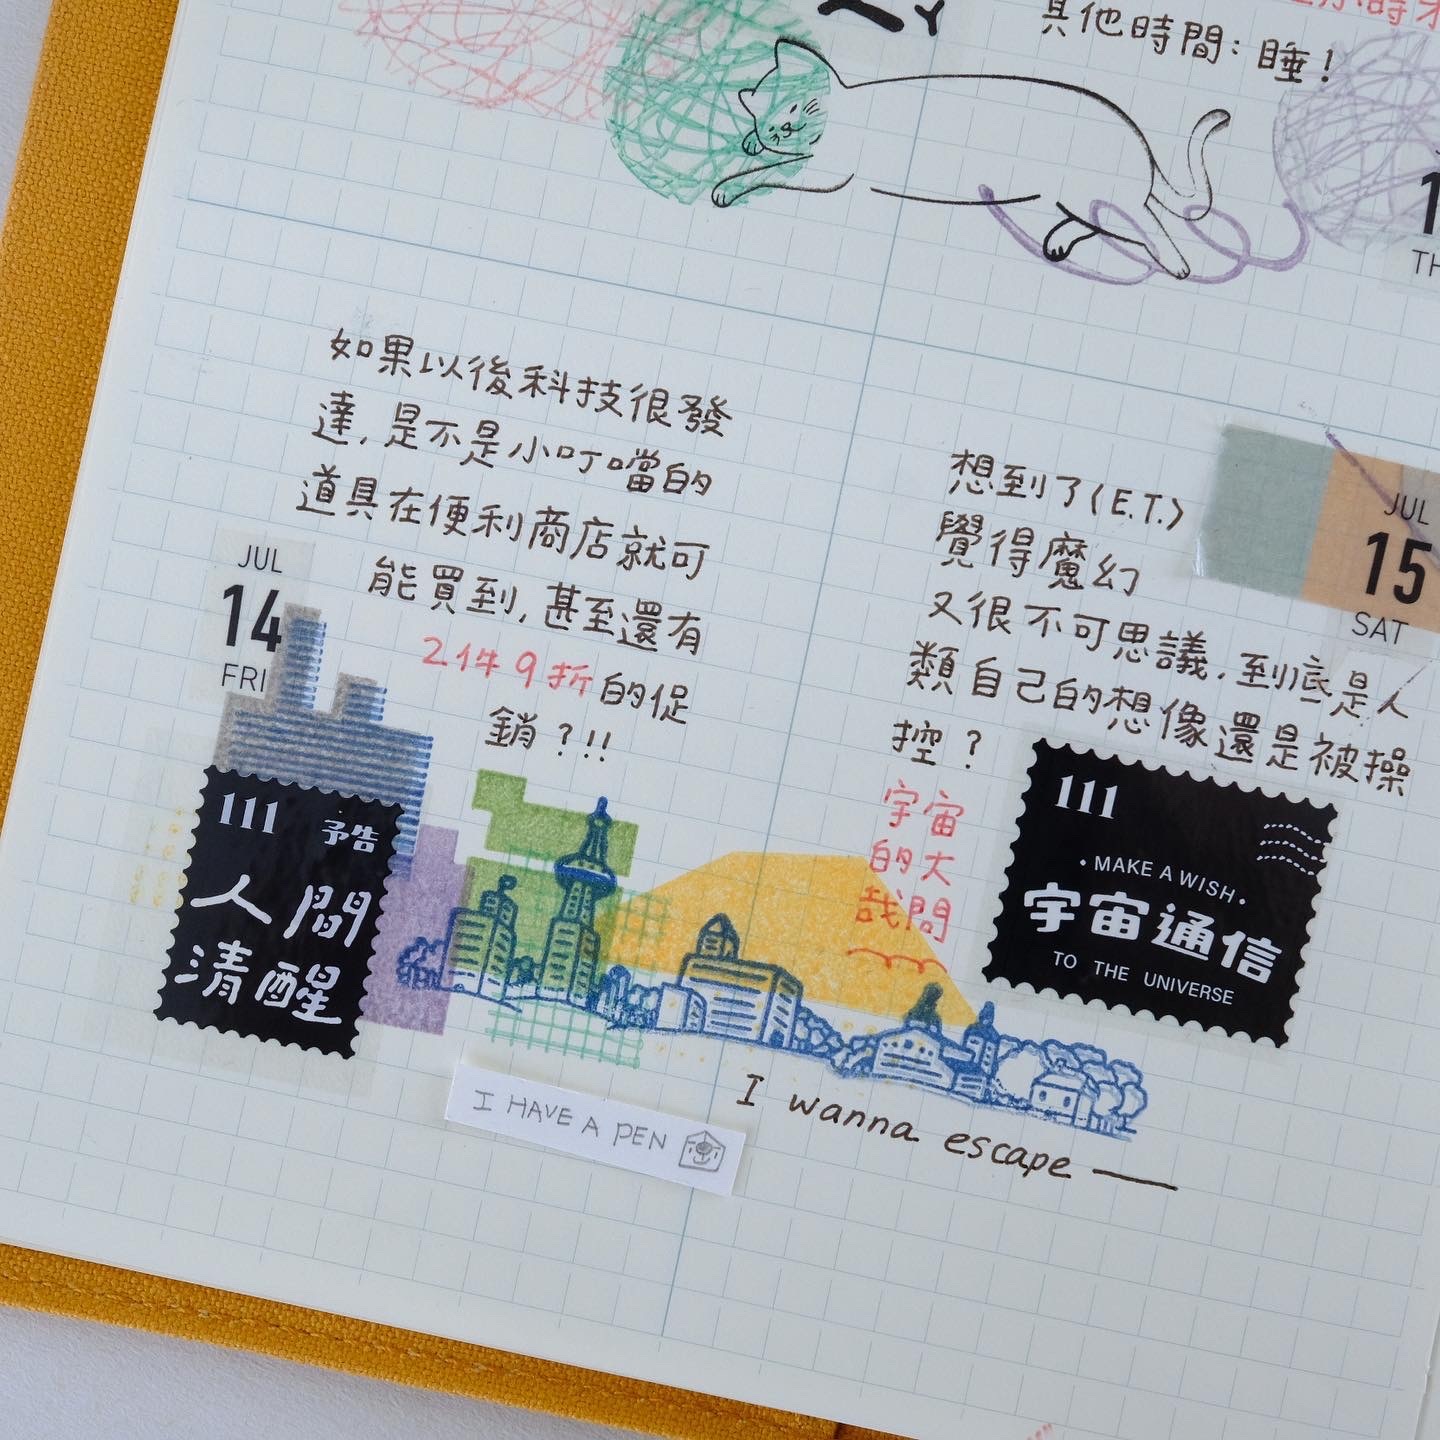 其他時間：睡！
如果以後科技很發
達，是不是小叮噹的
道具在便利商店就可
能買到，甚至還有
2件9折的促
銷？!!
JUL
14
FRI
111
予告
人間
清醒
I HAVE A PEN
想到了〈E.T.〉
覺得魔幻
又很不可思議，到底是人
類自己的想像還是被操
控？
宇宙
的大
哉問
JUL
15
SAT
111
·MAKE A WISH·
宇宙通信
TO THE UNIVERSE
I wanna escape —